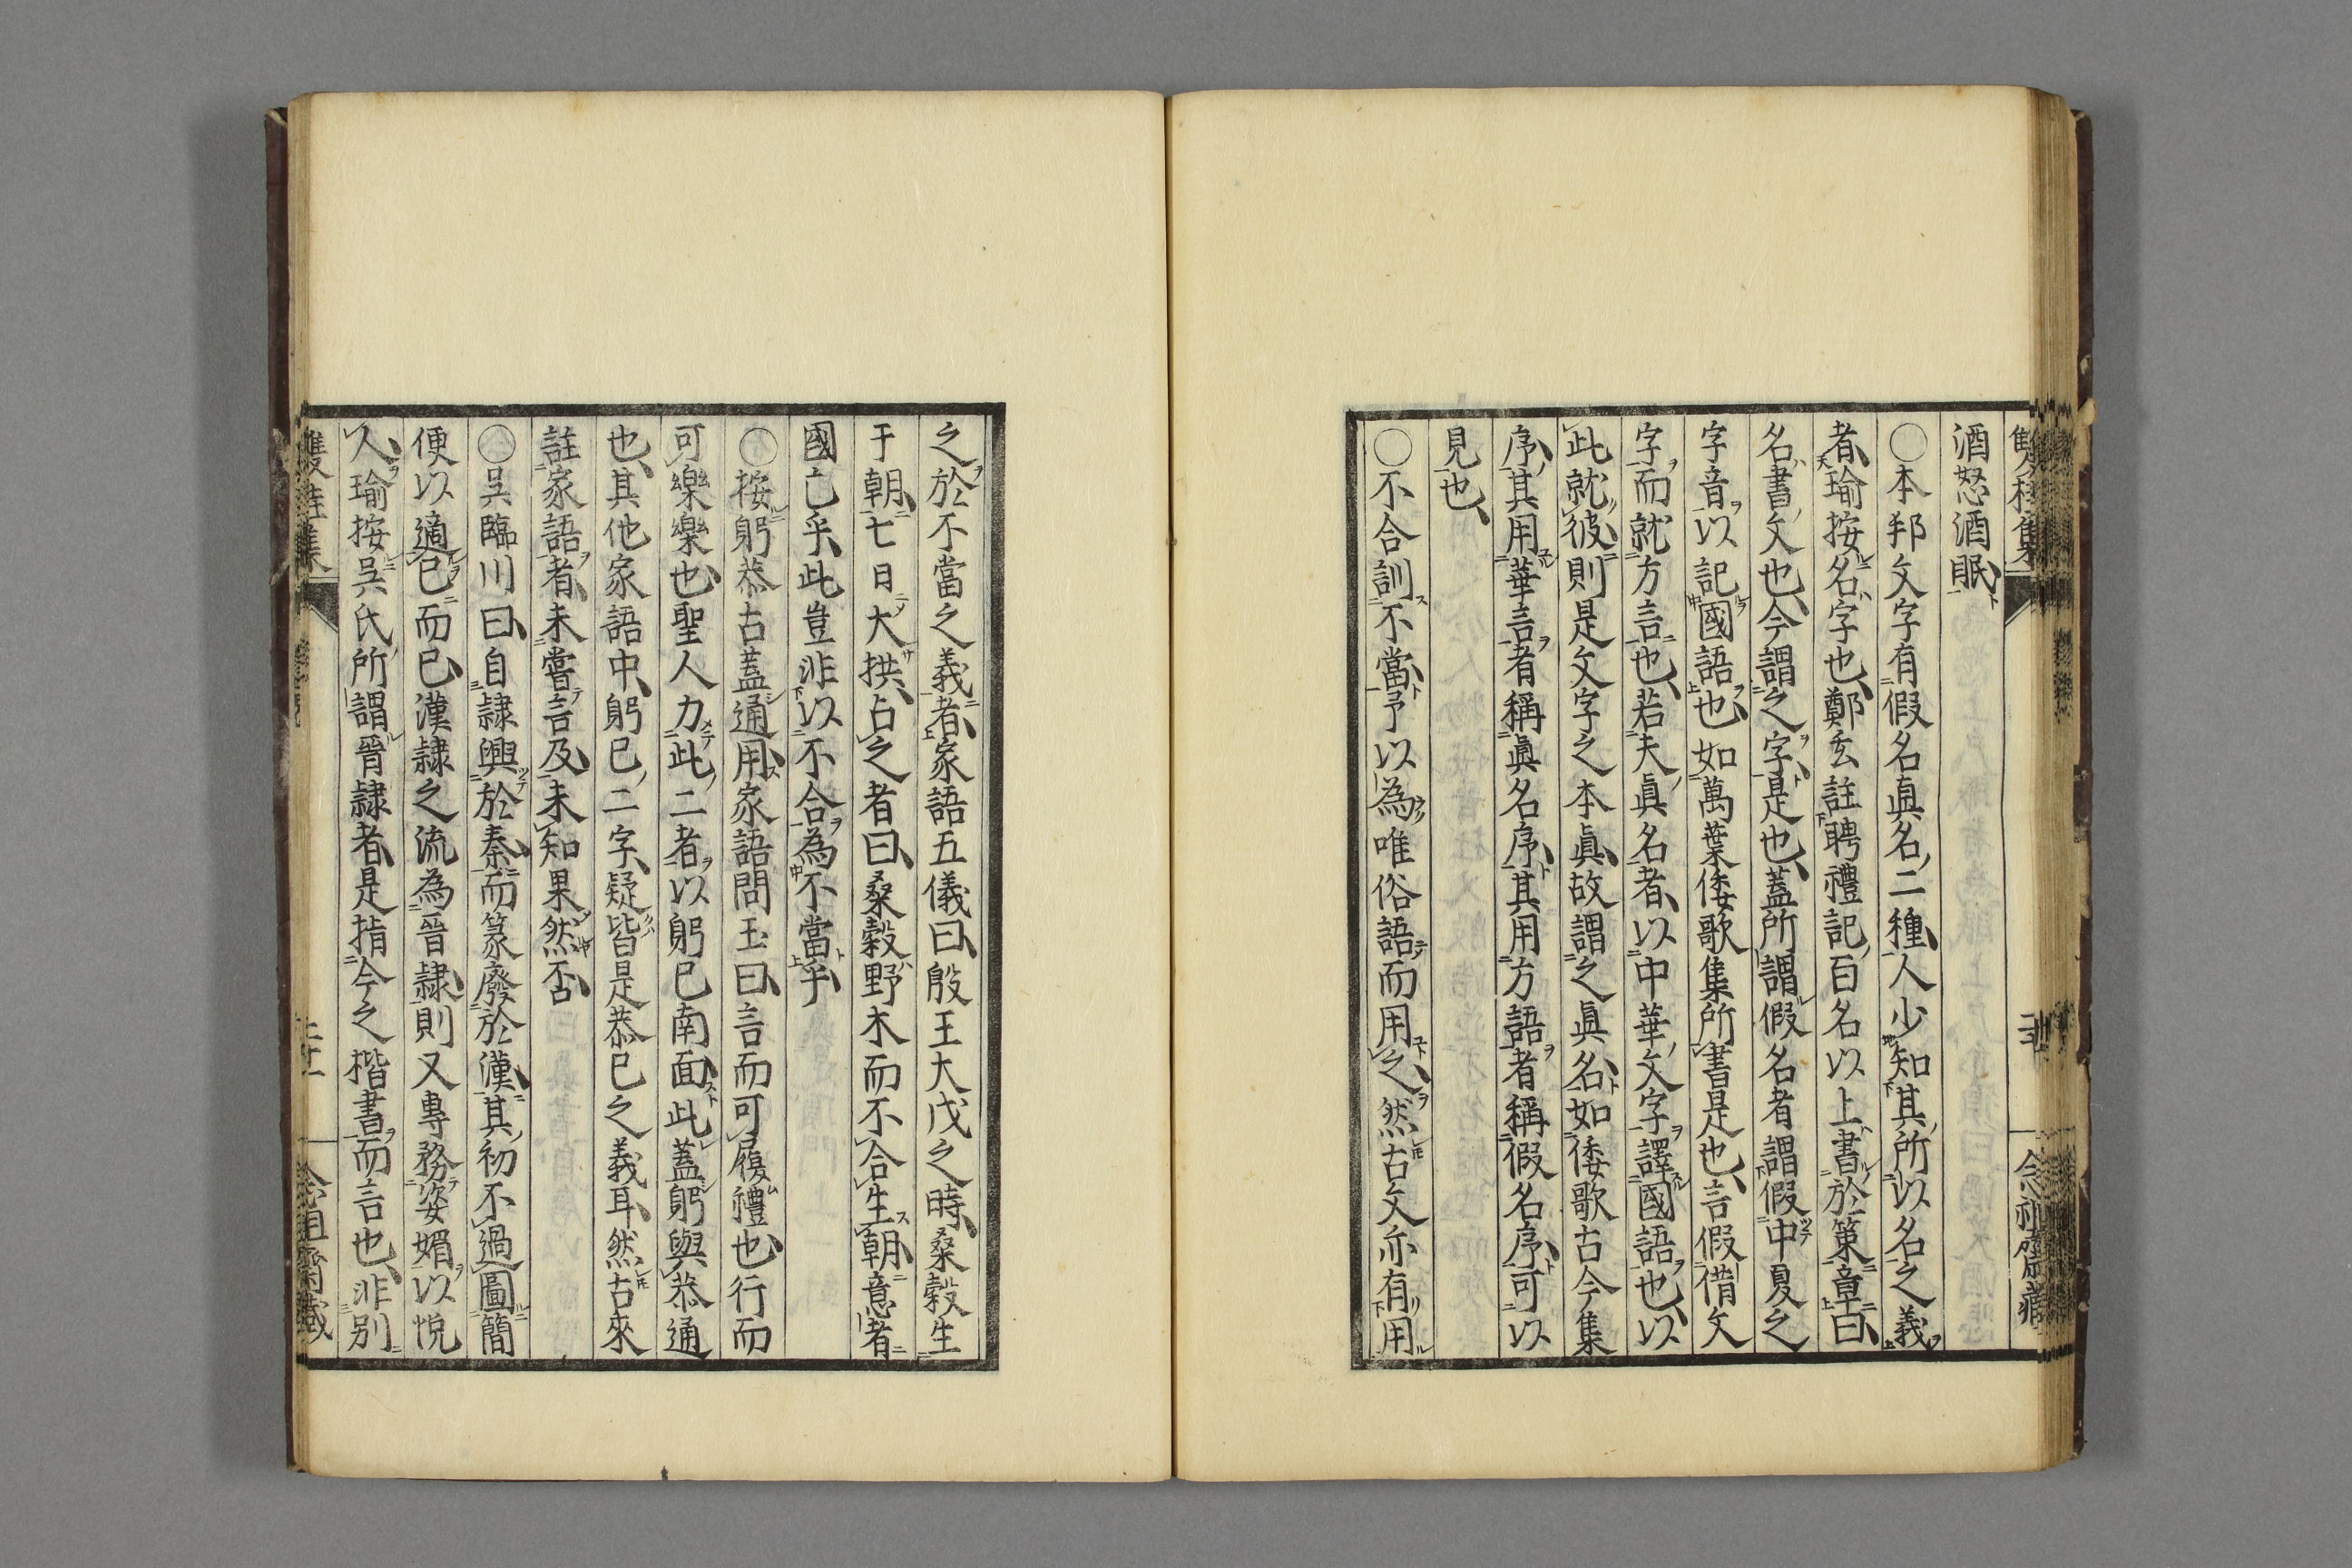 酒怒酒眠
○本邦文字有假名眞名二種人少知其所以名之義
者瑜按名字也鄭玄註聘禮記百名以上書於策章曰
名書文也今謂之字是也蓋所謂假名者謂假中夏之
字音以記國語也如萬葉倭歌集所書是也言假借文
字而就方言也若夫眞名者以中華文字譯國語也以
此就彼則是文字之本眞故謂之眞名如倭歌古今集
序其用華言者稱眞名序其用方語者稱假名序可以
見也
○不合訓不當予以為唯俗語而用之然古文亦有用
之於不當之義者家語五儀曰殷王大戊之時桑穀生
于朝七日大拱占之者曰桑穀野木而不合生朝意者
國亡乎此豈非以不合為不當乎
○按躬恭古蓋通用家語問玉曰言而可履禮也行而
可樂樂也聖人力此二者以躬已南面此蓋躬與恭通
也其他家語中躬已二字疑皆是恭已之義耳然古來
註家語者未嘗言及未知果然否
○吳臨川曰自隷興於秦而篆廢於漢其初不過圖簡
便以適已而已漢隷之流為晉隷則又專務姿媚以悅
人瑜按吳氏所謂晉隷者是指今之楷書而言也非別
雙桂集